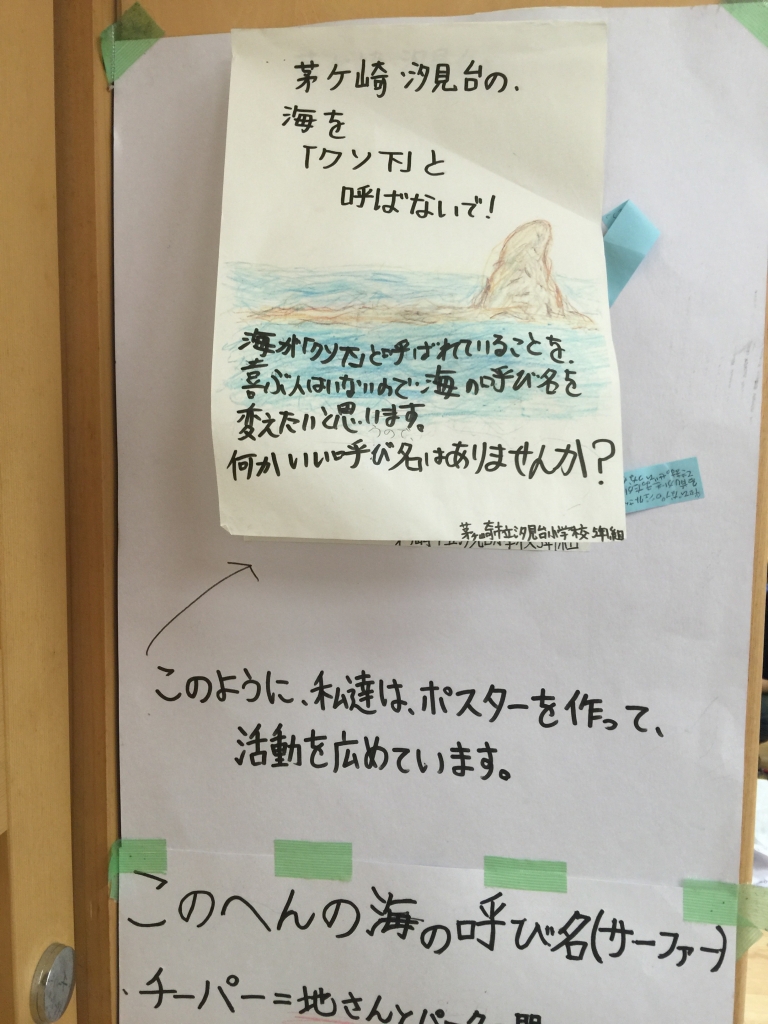 茅ケ崎 汐見台の、
海を
「クソ下」と
呼ばないで!
海が「クソ下」と呼ばれていることを、
喜ぶ人はいないので、海の呼び名を
変えたいと思います。
何かいい呼び名はありませんか?
茅ヶ崎市立汐見台小学校5年1組
このように、私達は、ポスターを作って、
活動を広めています。
このへんの海の呼び名(サーファー)
チーパー=地さんとパーク